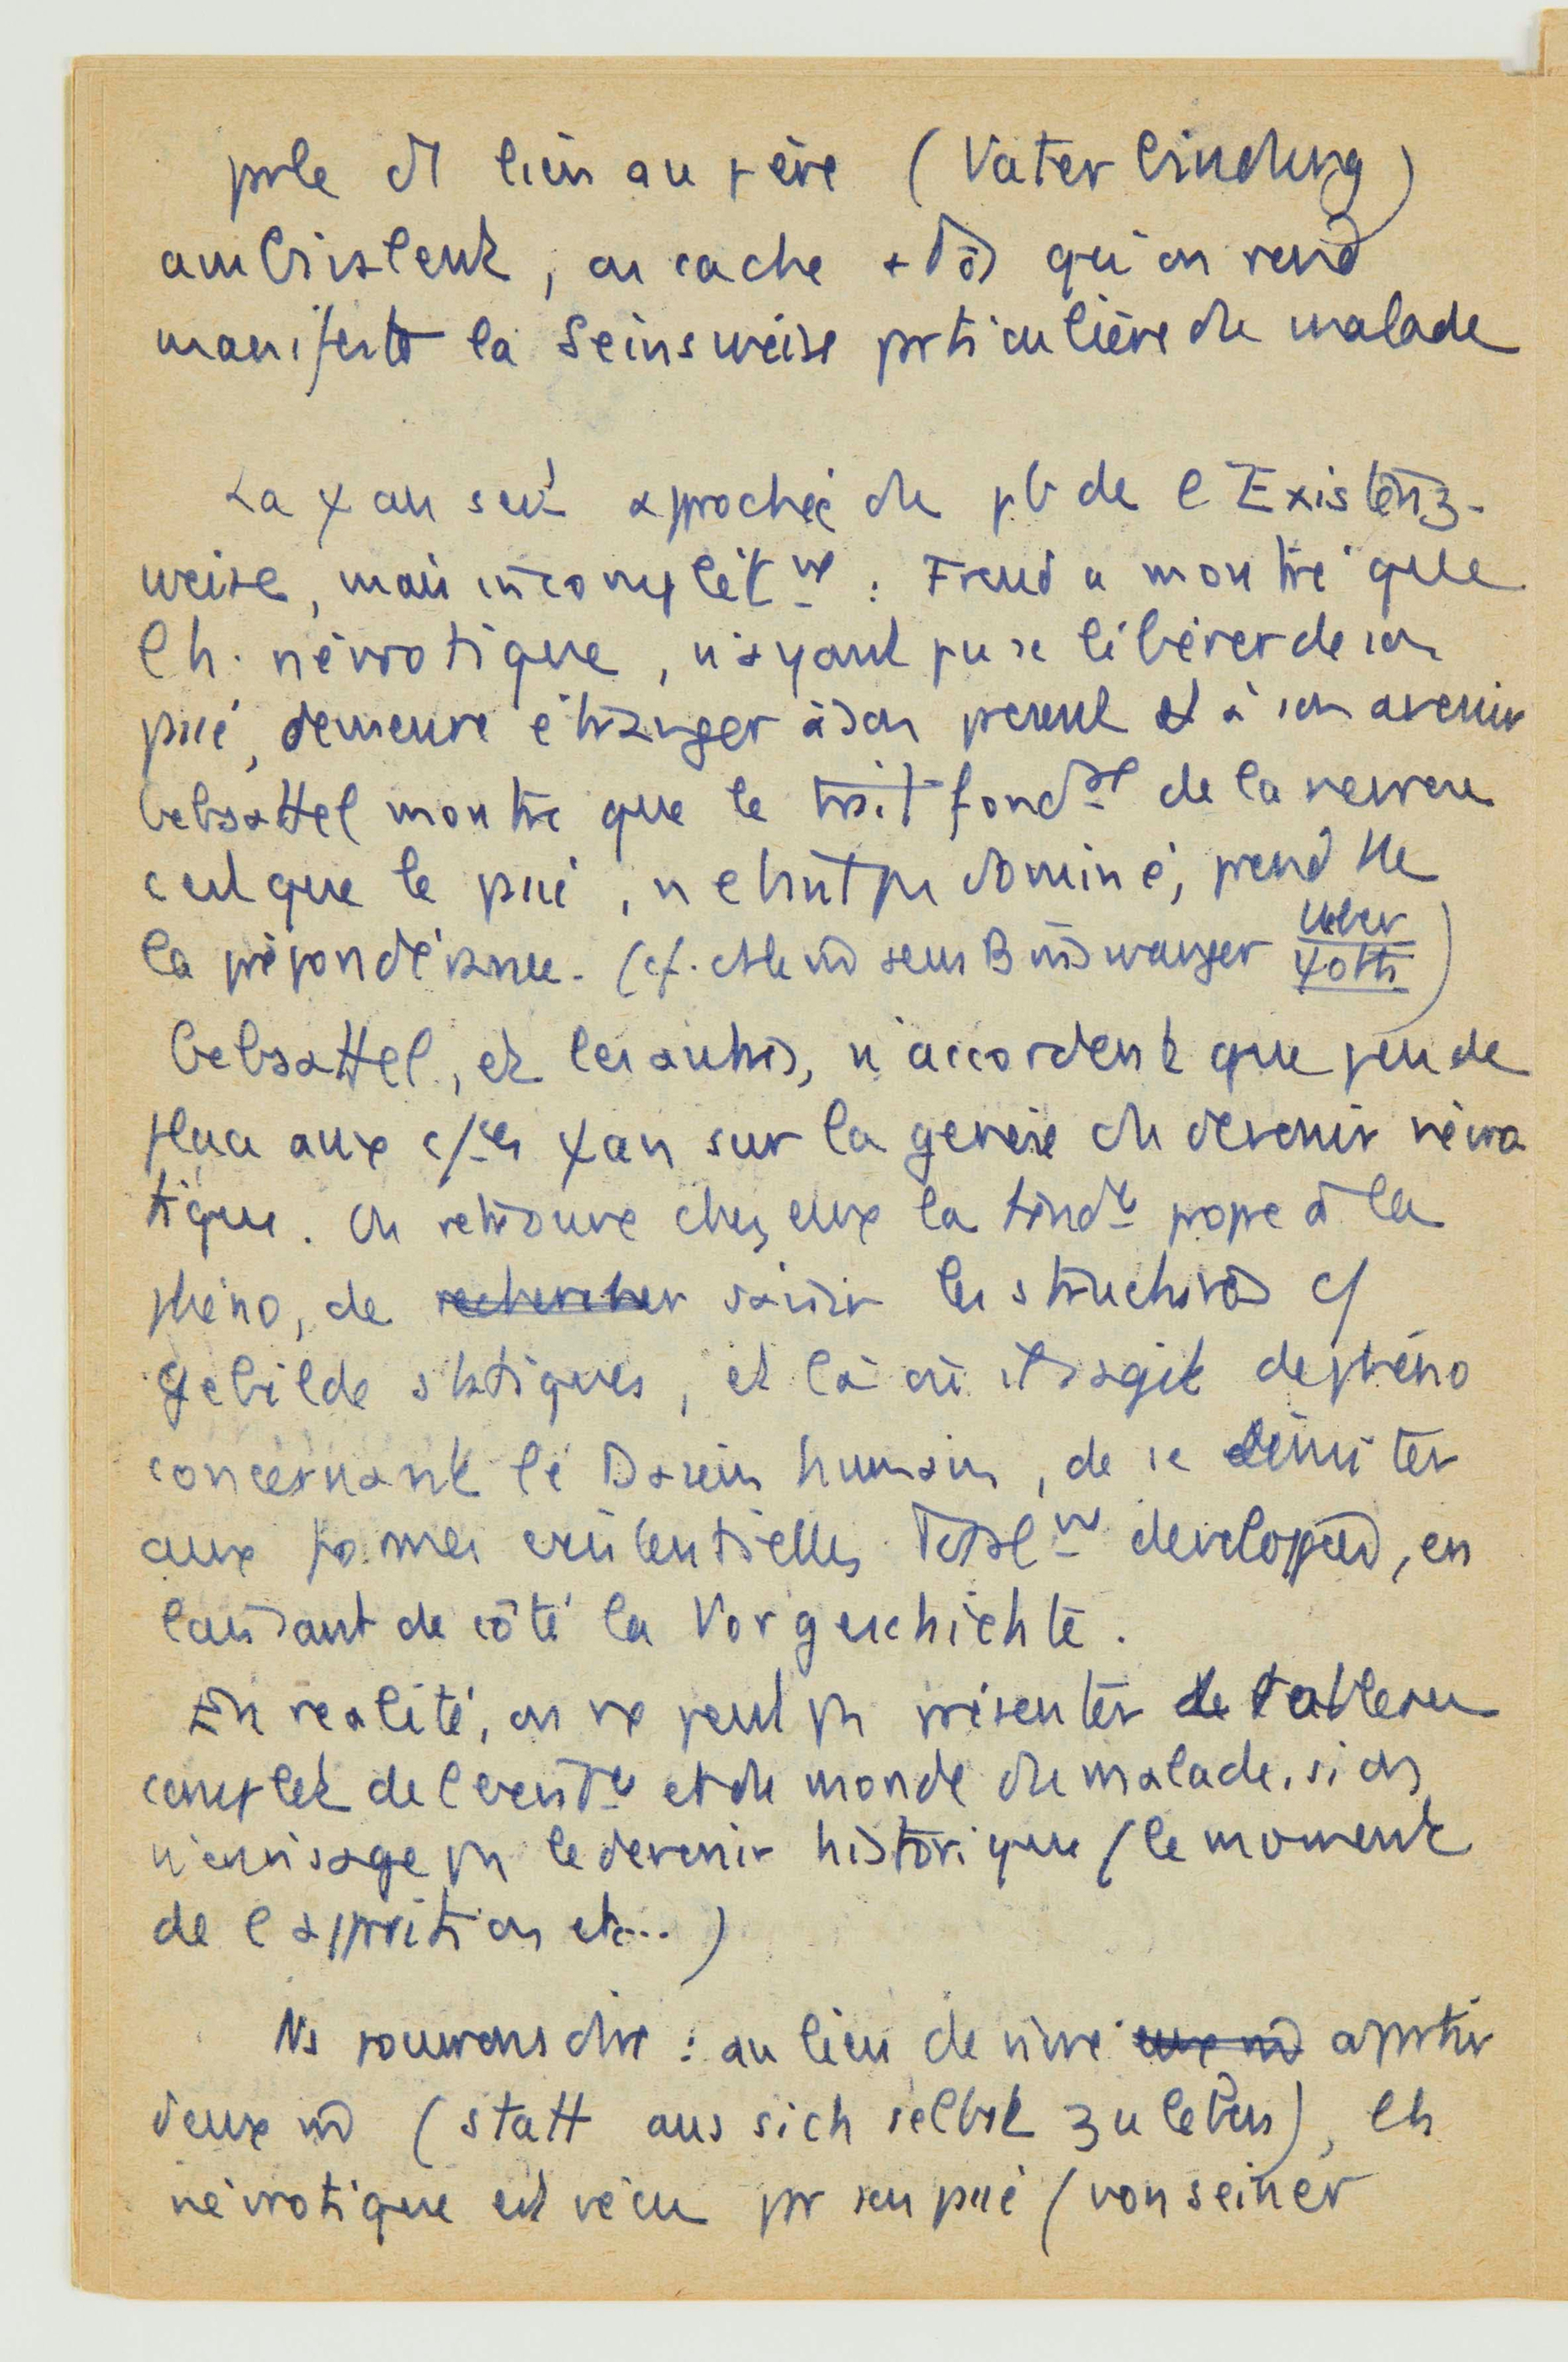 prle dt lien au père (Vaterbindung)
ambivalent, on cache + tôt qu'on rend
manifeste la Seinsweise prticulière du malade
La ψan s'est approchée du pb de l'Existenz-
weise, mais incomplètnt : Freud a montré que
l'h. névrotique, n'ayant pu se libérer de son
pssé, demeure étranger à son present et à son avenir
Gebsattel montre que le trait fondal de la nevrose
c'est que le pssé, n'étant ps dominé, prend tte
la prépondérance. (cf. Binswanger Über ψoth)
Gebsattel, et les autres, n'accordent que peu de
place aux c/ces ψan sur la genèse du devenir névro
tique. On retrouve chez eux la tendce propre à la
phéno, de rechercher saisir les structures c/
Gebilde statiques, et là où il s'agit de phéno
concernant le Dasein humain, de se limiter
aux formes existentielles totalnt developpées, en
laissant de côté la Vorgeschichte.
En réalité, on ne peut ps présenter le tableau
complet de l'existce et du monde du malade, si on
n'envisage ps le devenir historique (le moment
de l'apparition etc...)
Ns pouvons dire : au lieu de vivre à prtir
d'eux m̂ (statt aus sich selbst zu leben), l'h
névrotique est vécu pr son pssé (von seiner